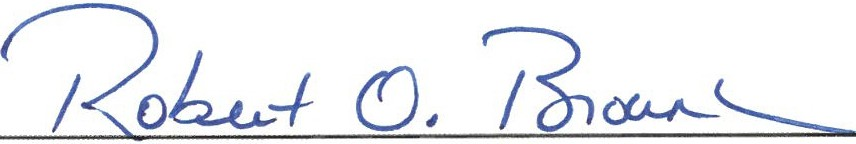 Robert O. Brown